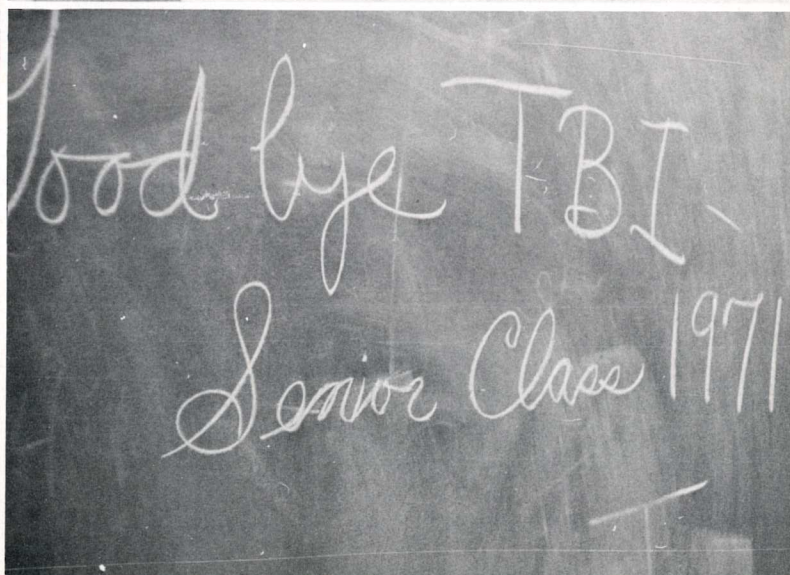 Good bye TBI-
Senior Class 1971